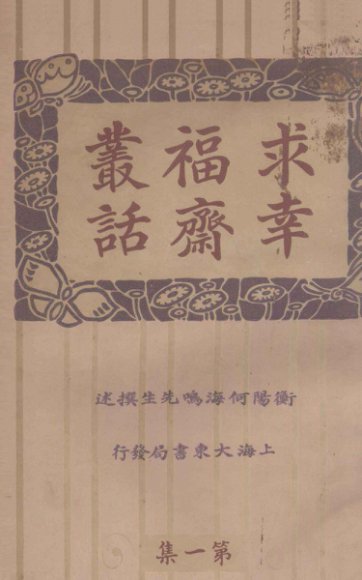 求幸
福齋
叢話
衡陽何海鳴先生撰述
上海大東書局發行
第一集